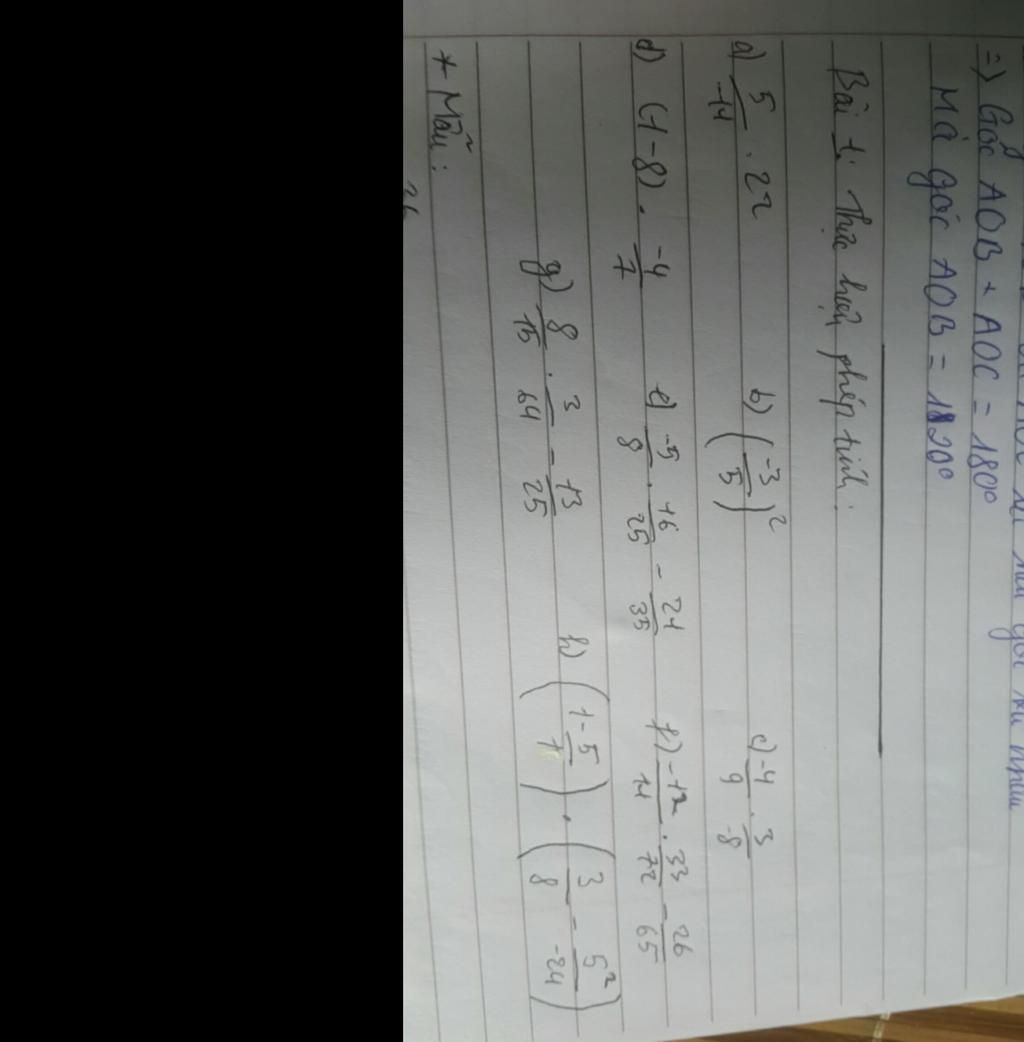 =) Góc AOB + AOC = 180°
Mà góc AOB = 120°
Bài 1: Thực hiện phép tính:
a) 5/-14 . 22 b) (-3/5)² c) -4/9 . 3/-8
d) (1-8) . -4/7 e) -5/8 . 16/25 - 21/35 f) -12/11 . 33/72 - 26/65
g) 8/15 . 3/64 - 13/25 h) (1-5/) . (3/8 - 5²/-24)
* Mẫu: